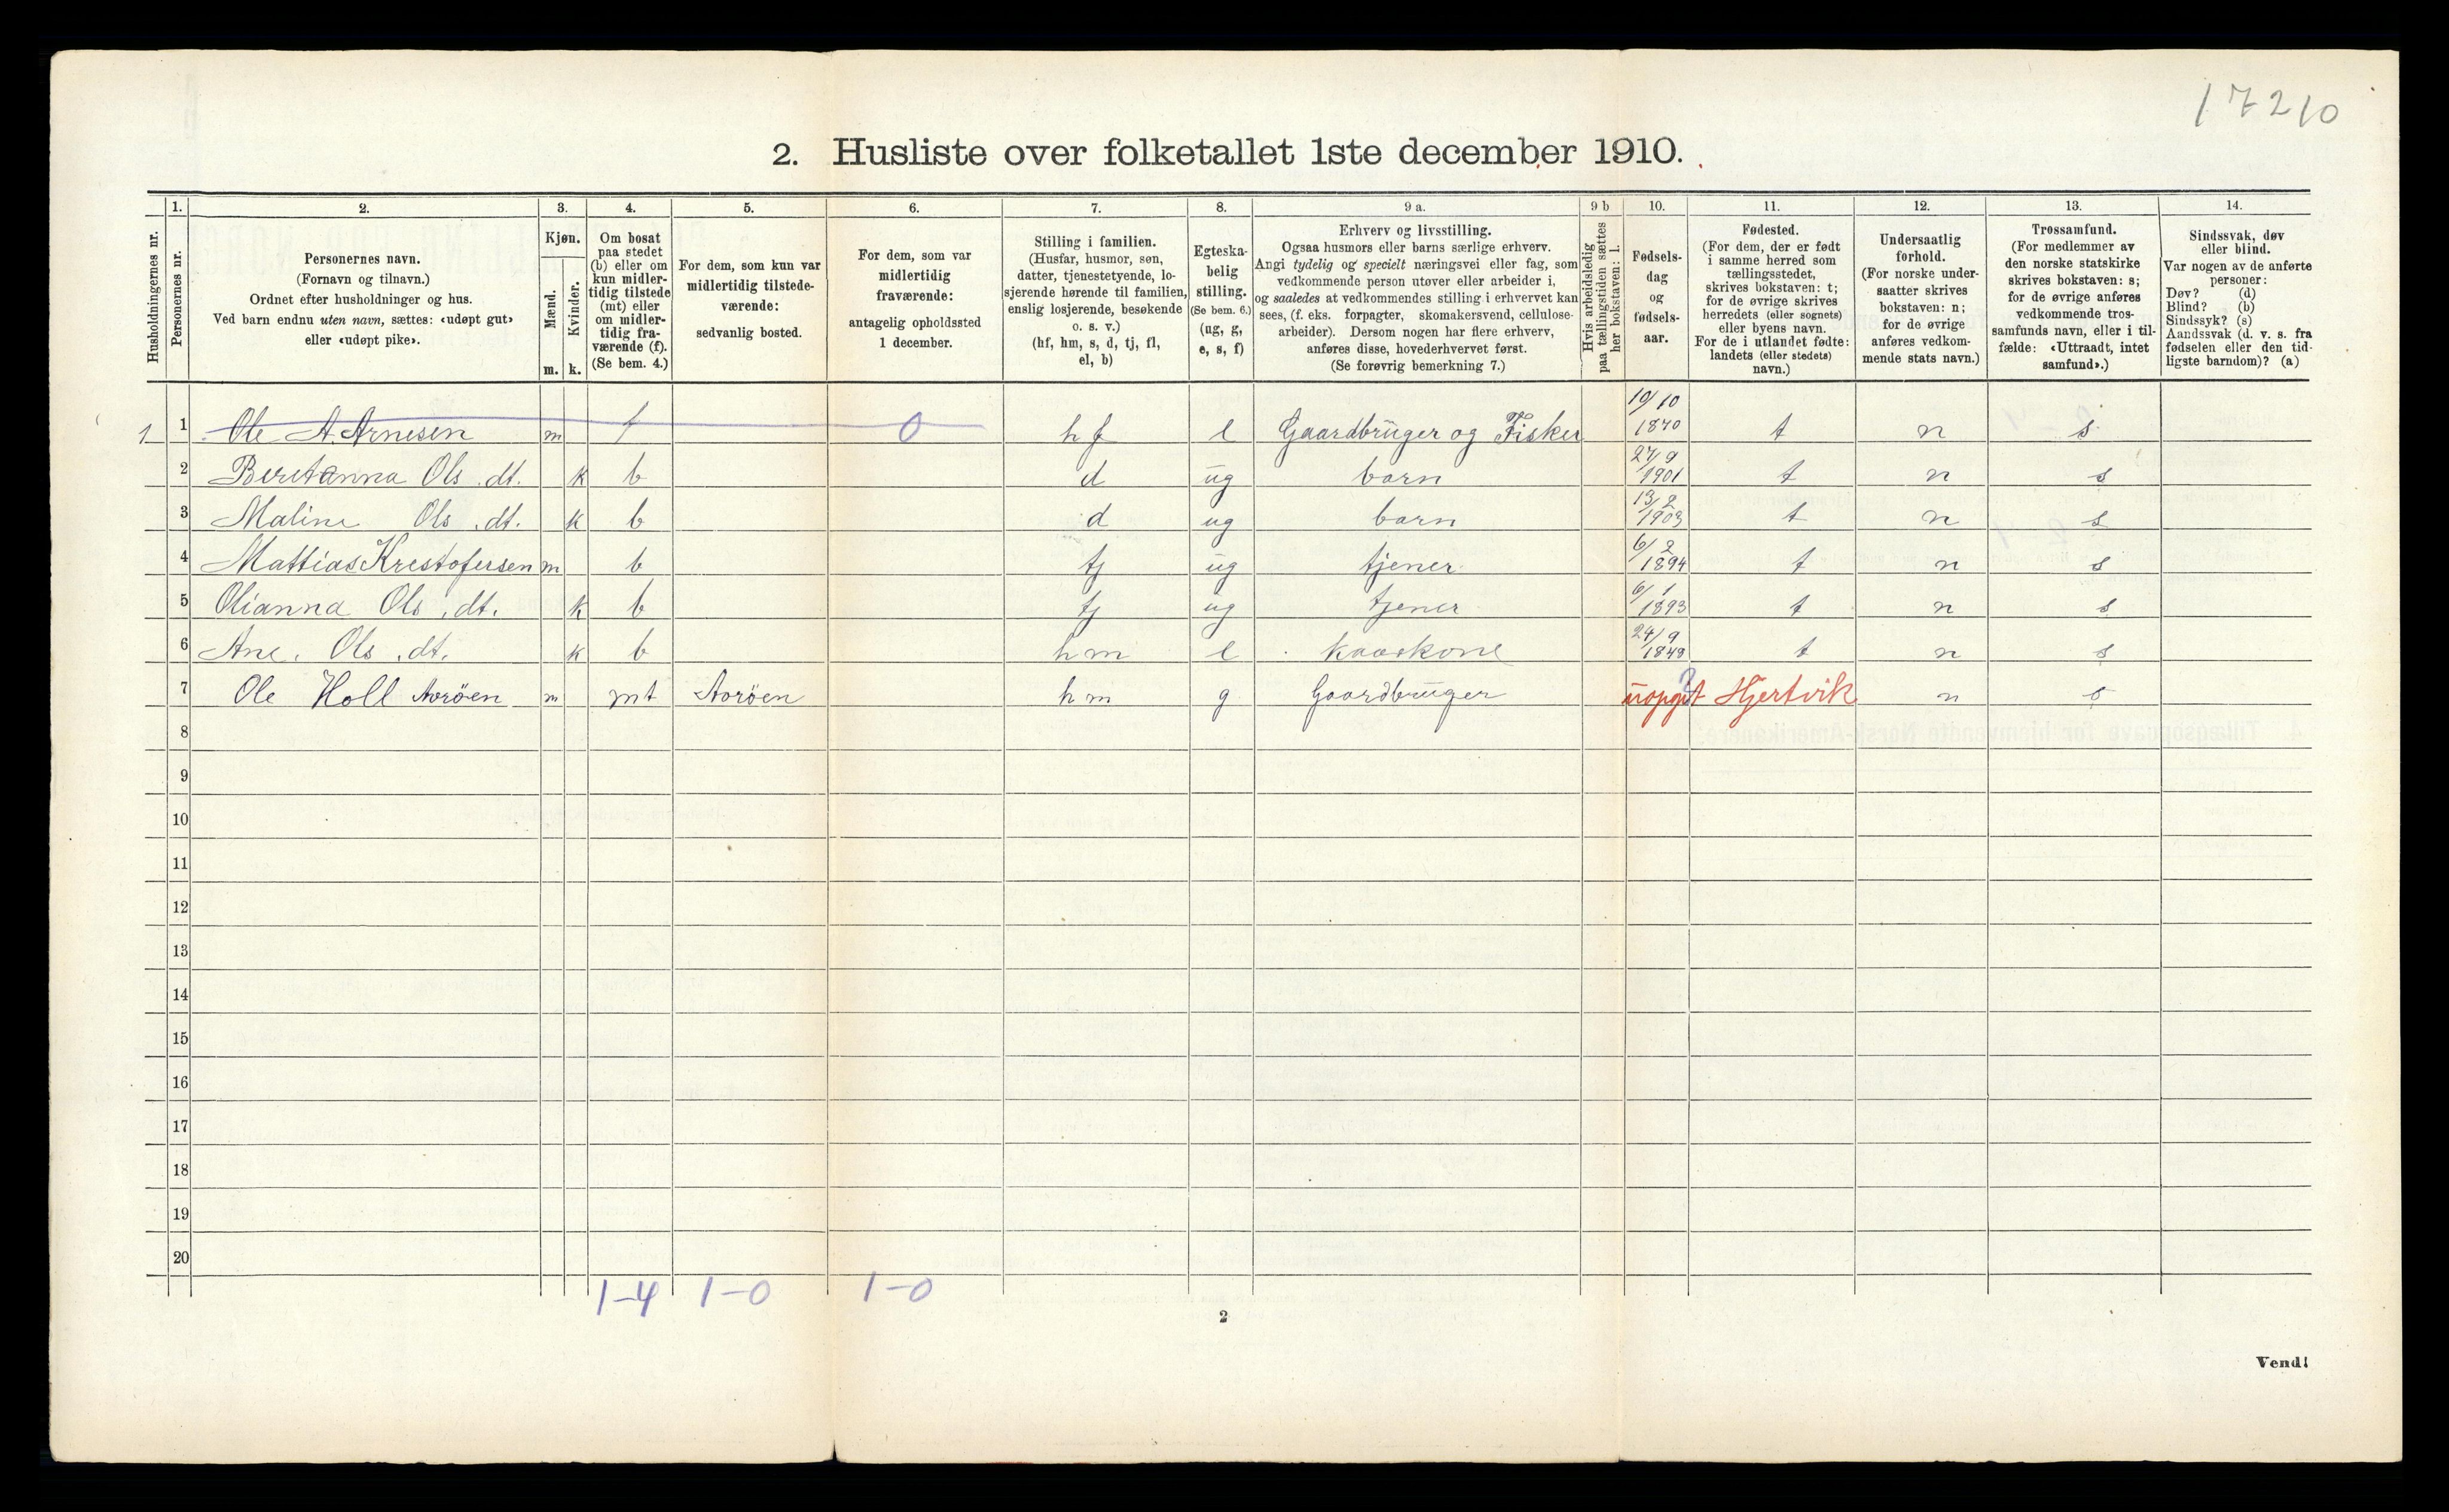 17210
2. Husliste over folketallet 1ste december 1910.
Husholdningernes nr.
1.
Personernes nr.
2.
Personernes navn.
(Fornavn og tilnavn.)
Ordnet efter husholdninger og hus.
Ved barn endnu uten navn, sættes: «udøpt gut»
eller «udøpt pike».
3.
Kjøn.
Mænd.
Kvinder.
m. k.
4.
Om bosat
paa stedet
(b) eller om
kun midler-
tidig tilstede
(mt) eller
om midler-
tidig fra-
værende (f).
(Se bem. 4.)
5.
For dem, som kun var
midlertidig tilstede-
værende:
sedvanlig bosted.
6.
For dem, som var
midlertidig
fraværende:
antagelig opholdssted
1 december.
7.
Stilling i familien.
(Husfar, husmor, søn,
datter, tjenestetyende, lo-
sjerende hørende til familien,
enslig losjerende, besøkende
o. s. v.)
(hf, hm, s, d, tj, fl,
el, b)
8.
Egteska-
belig
stilling.
(Se bem. 6.)
(ug, g,
e, s, f)
9 a.
Erhverv og livsstilling.
Ogsaa husmors eller barns særlige erhverv.
Angi tydelig og specielt næringsvei eller fag, som
vedkommende person utøver eller arbeider i,
og saaledes at vedkommendes stilling i erhvervet kan
sees, (f. eks. forpagter, skomakersvend, cellulose-
arbeider). Dersom nogen har flere erhverv,
anføres disse, hovederhvervet først.
(Se forøvrig bemerkning 7.)
9 b
Hvis arbeidsledig
paa tællingstiden sættes
her bokstaven: l.
10.
Fødsels-
dag
og
fødsels-
aar.
11.
Fødested.
(For dem, der er født
i samme herred som
tællingsstedet,
skrives bokstaven: t;
for de øvrige skrives
herredets (eller sognets)
eller byens navn.
For de i utlandet fødte:
landets (eller stedets)
navn.)
12.
Undersaatlig
forhold.
(For norske under-
saatter skrives
bokstaven: n;
for de øvrige
anføres vedkom-
mende stats navn.)
13.
Trossamfund.
(For medlemmer av
den norske statskirke
skrives bokstaven: s;
for de øvrige anføres
vedkommende tros-
samfunds navn, eller i til-
fælde: «Uttraadt, intet
samfund».)
14.
Sindssvak, døv
eller blind.
Var nogen av de anførte
personer:
Døv? (d)
Blind? (b)
Sindssyk? (s)
Aandssvak (d. v. s. fra
fødselen eller den tid-
ligste barndom)? (a)
1 1 Ole A. Arnesen m f 0 hf e Gaardbrüger og Fisker 19/10 1870 t n s
2 Beretanna Ols.dt. k b d ug barn 27/9 1901 t n s
3 Maline Ols.dt. k b d ug barn 13/2 1903 t n s
4 Mattias Krestofersen m b tj ug tjener 6/2 1894 t n s
5 Olianna Ols.dt. k b tj ug tjener 6/1 1893 t n s
6 Ane. Ols.dt. k b hm e kaarkone 24/9 1849 t n s
7 Ole Holl Aoröen m mt Aoröen hm g Gaardbrüger uopgit ? Hjertvik n s
8
9
10
11
12
13
14
15
16
17
18
19
20
1-4 1-0 1-0
2
Vend!